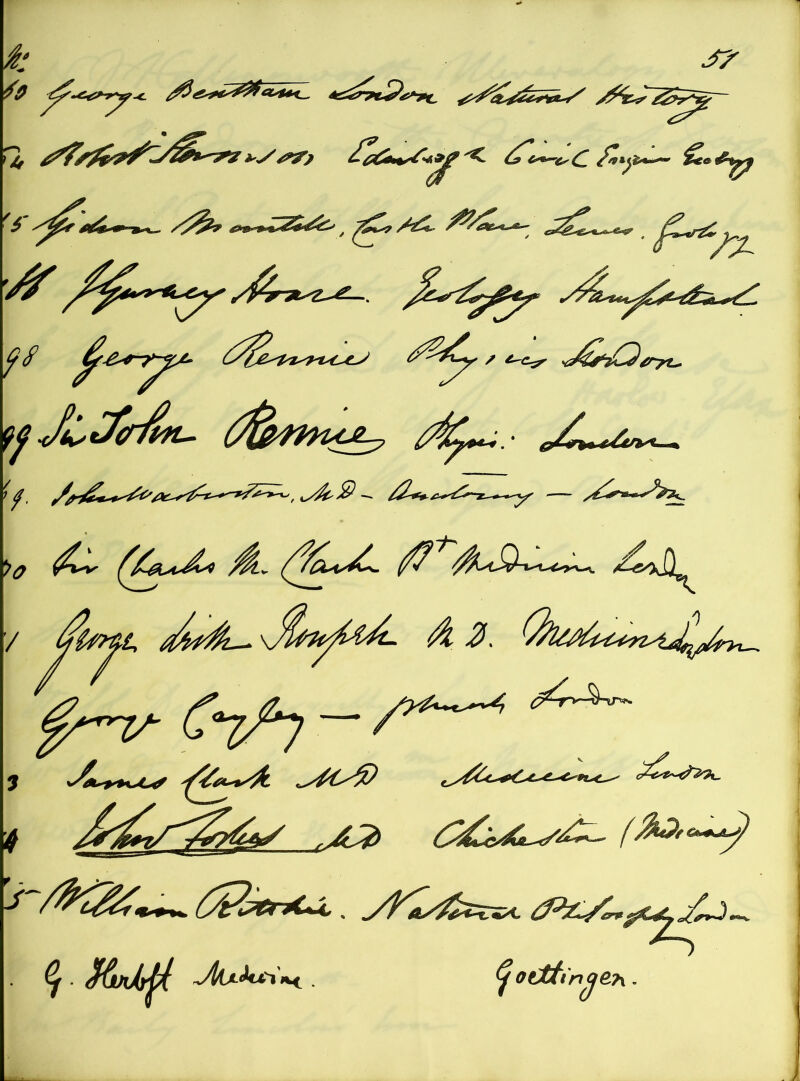 No. 51
George Bentham London Natural History
Robert Stevenson Edinburgh Civil Engin Geology
Gideon Mantell, Castle Place, Lewes. Geology
J Gurney Hoare. Geology Hampstead
98 George Rennie Physics London
99 Sir John Rennie Physics: London
John Warburton, MD - Anatomy - London
Sir Charles M. Clarke Bt Medicine London
George Leith Roupell M D. Medicine London
George Cayley — London
3 James Clark MD Medicine London
4 John Forbes MD Chichester (Medicine)
5 William Ritchie. Natural Philosophy London
G. Herbst Medicine. Goettingen.